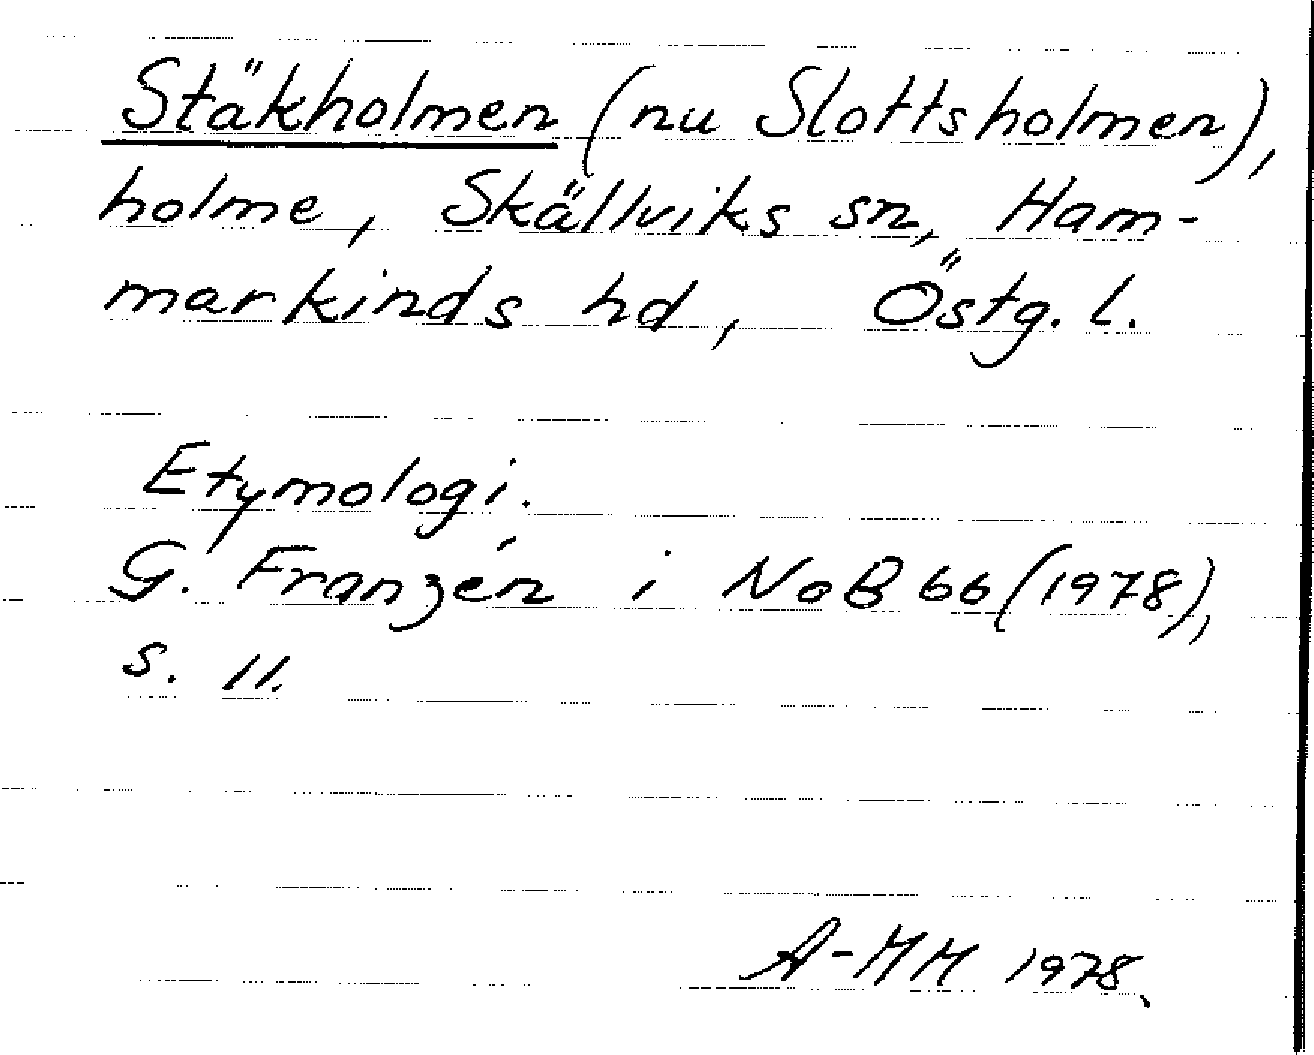 Stäkholmen (nu Slottsholmen),
holme, Skällviks sn, Ham-
markinds hd, Östg. l.
Etymologi.
G. Franzén i NoB 66 (1978),
s. 11.
A-MM 1978.